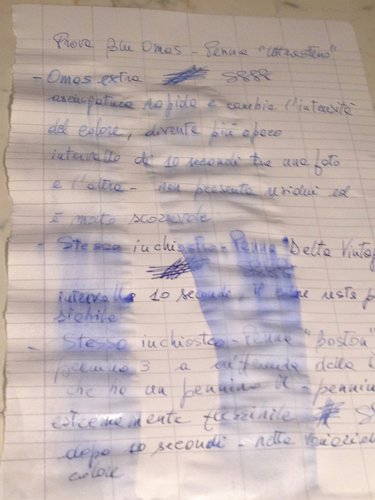 Prova Blu Omas - Penna "
- Omas extra SSSS
asciugatura rapida e cambia l'intensità
del colore, diventa più opaco
intervallo di 10 secondi tra una foto
e l'altra - non presenta residui ed
è molto scorrevole
- Stesso inchiostro - Penna Delta Vintag
intervallo 10 secondi, il colore resta p
- Stesso inchiostro - Penna "Boston"
pennino 3 a differenza della
che ha un pennino - pennin
estremamente flessibile
dopo 10 secondi - netta
colore